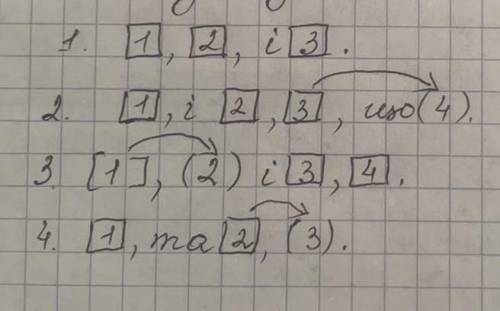 1. [1], [2], і [3].
2. [1], і [2], [3], що(4).
3. [1], (2) і [3], [4].
4. [1], та [2], (3).